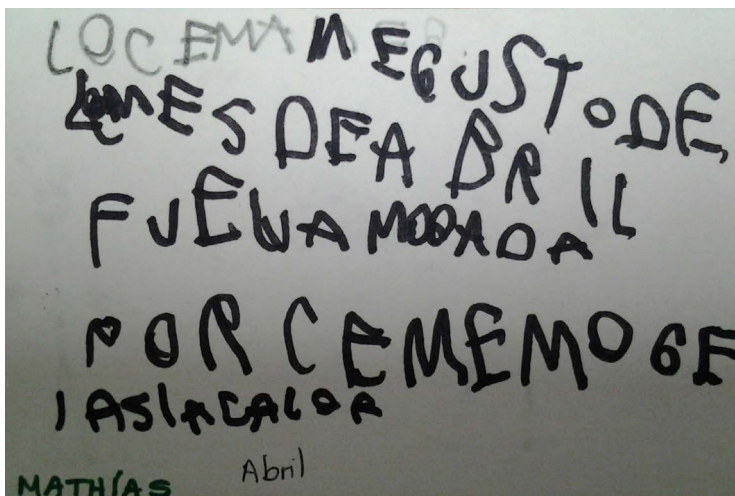 LOCEMA MEGUSTODE
MES DEA BRIL
FUE LA MOJADA
PORCEMEMOGE
IASIACALOR
Abril
MATHÍAS